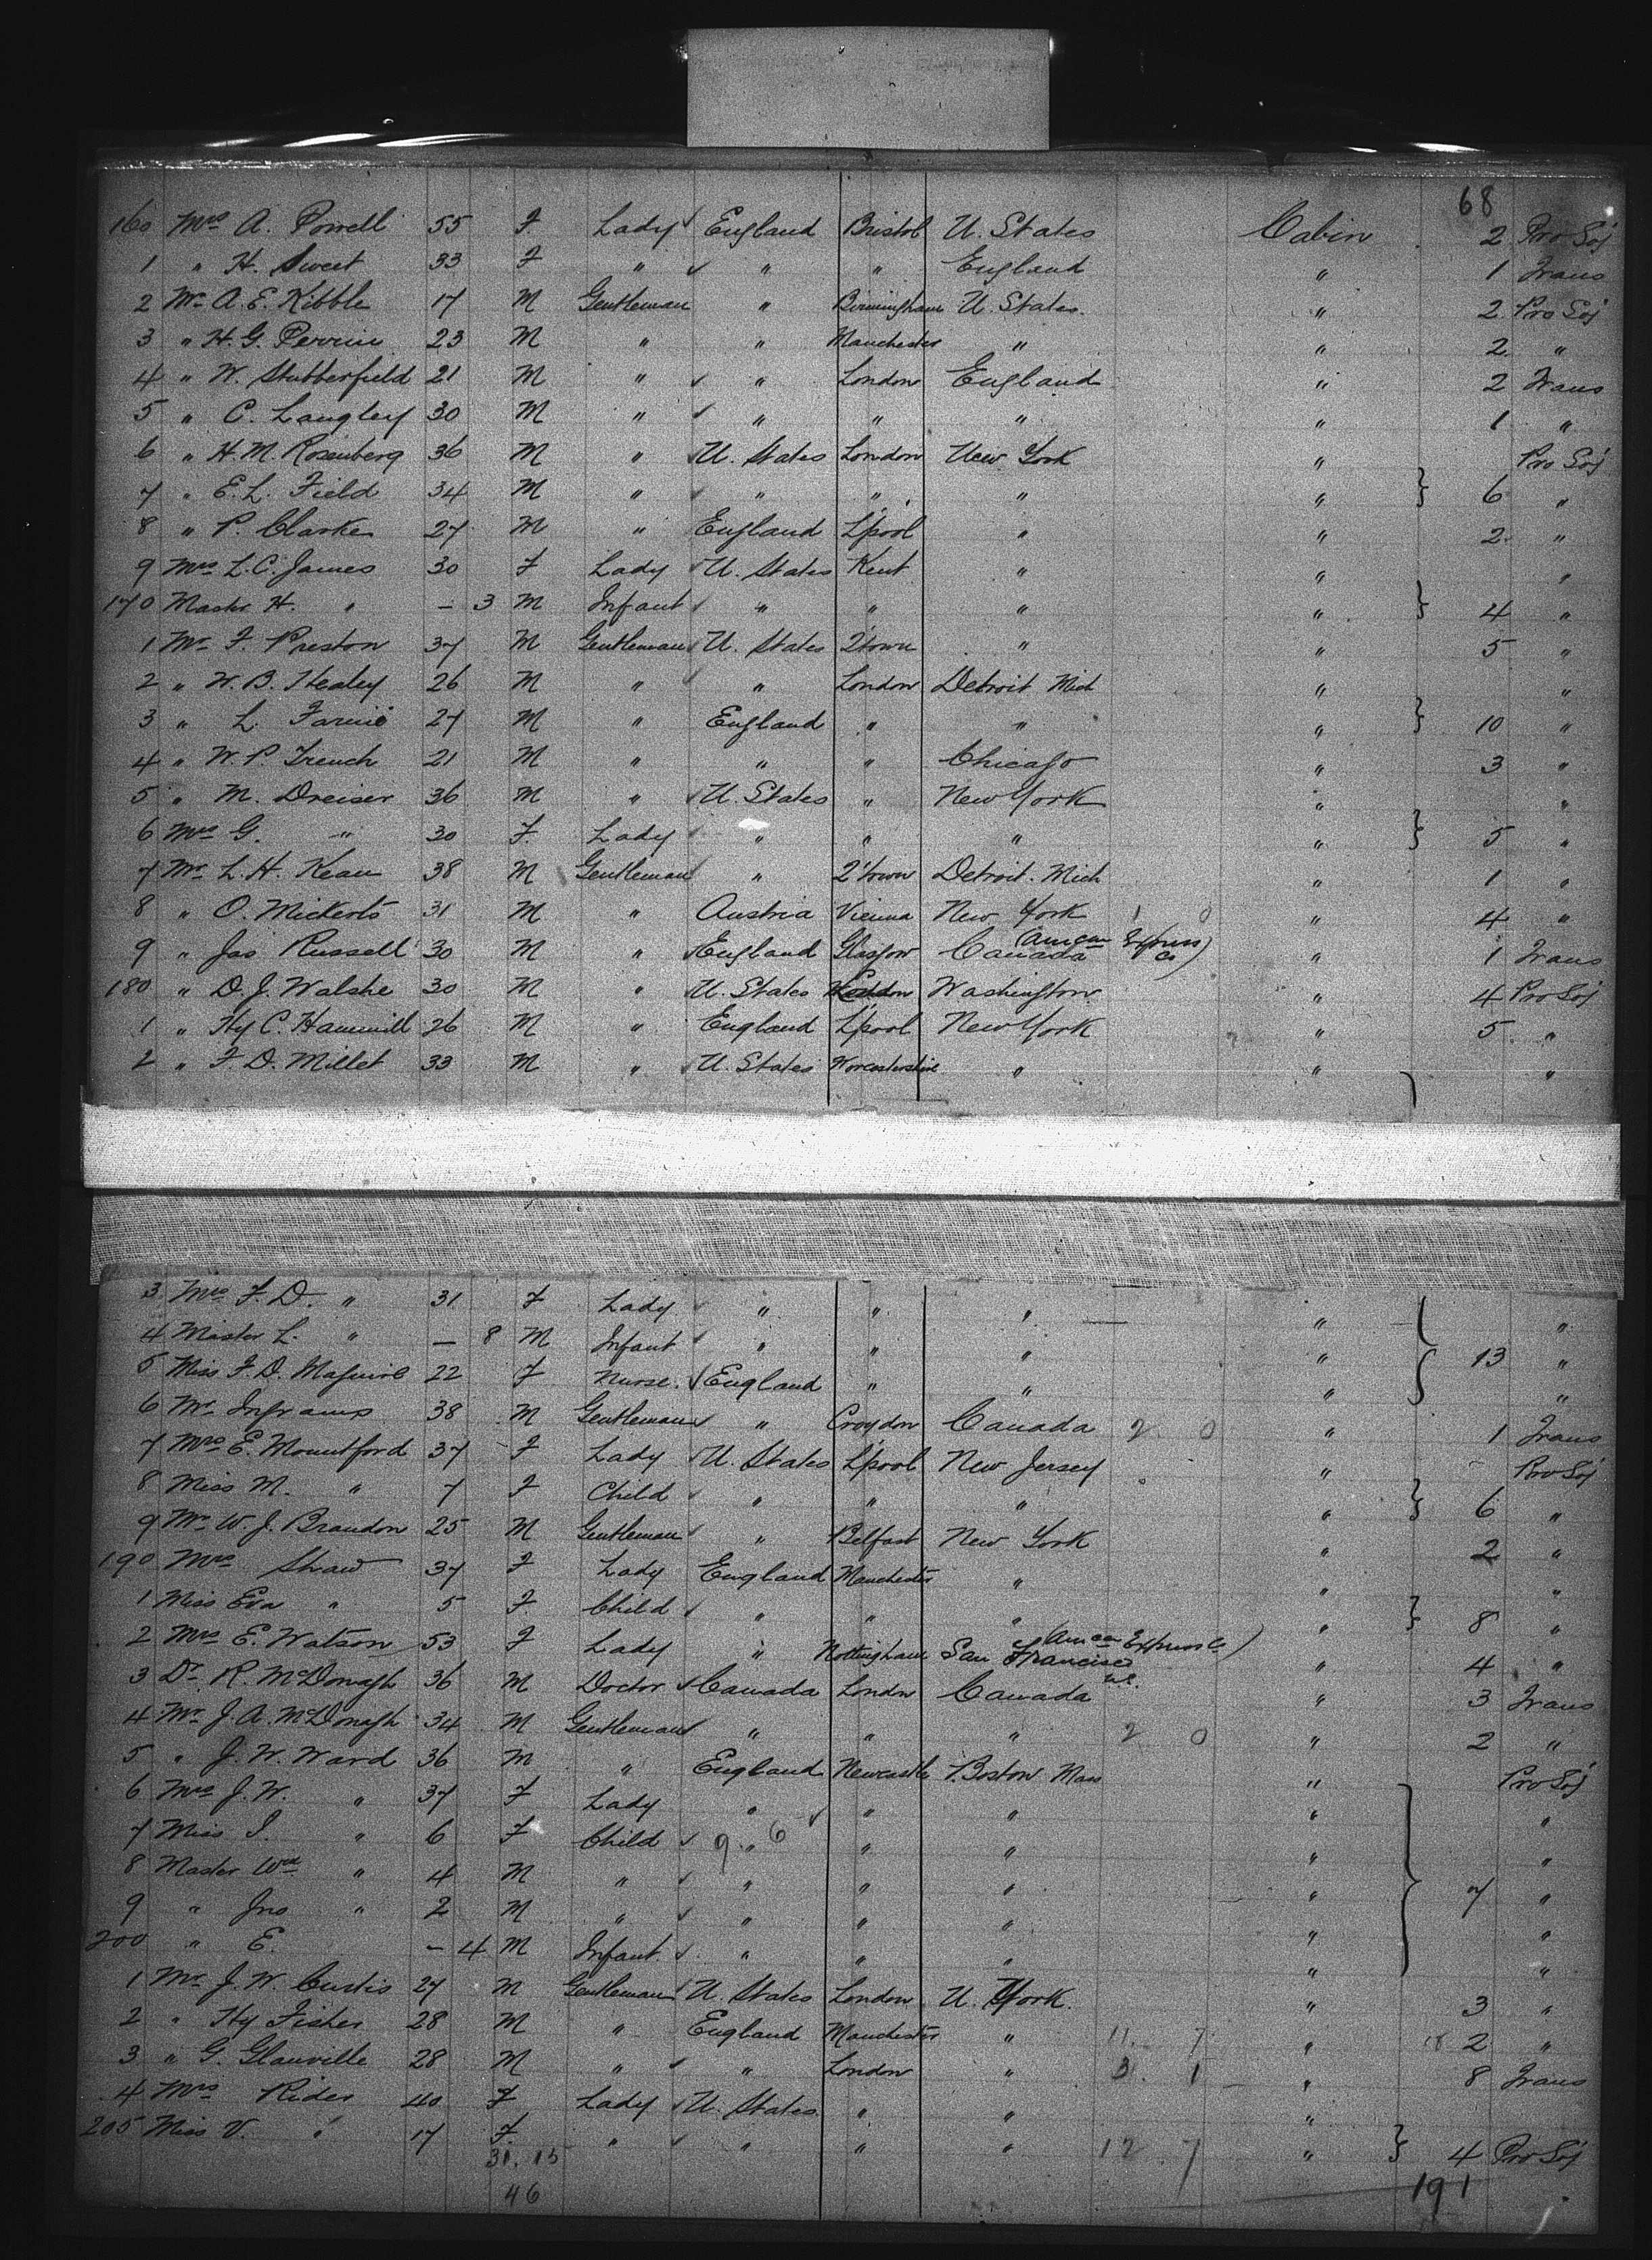 68
160 Mrs A. Powell 55 F Lady England Bristol U. States Cabin 2 Pro Soj
1 " H. Sweet 33 F " " " England " 1 Trans
2 Mr A. E. Kibble 17 M Gentleman " Birmingham U. States " 2 Pro Soj
3 " H. G. Perrin 23 M " " Manchester " " 2 "
4 " W. Stubberfield 21 M " " London England " 2 Trans
5 " C. Langley 30 M " " " " " 1 "
6 " H. M. Rosenberg 36 M " U. States London New York " Pro Soj
7 " E. L. Field 34 M " " " " " 6 "
8 " P. Clarke 27 M " England L'pool " " 2 "
9 Mrs L. C. James 30 F Lady U. States Kent " " "
170 Master H. " – 3 M Infant " " " " 4 "
1 Mr F. Preston 37 M Gentleman U. States Q'town " " 5 "
2 " W. B. Healey 26 M " " London Detroit Mich " "
3 " L. 27 M " England " " " 10 "
4 " W. P. French 21 M " " " Chicago " 3 "
5 " M. Dreiser 36 M " U. States " New York " "
6 Mrs G. " 30 F. Lady " " " " 5 "
7 Mr L. H. Kean 38 M Gentleman " Q'town Detroit. Mich " 1 "
8 " O. 31 M " Austria Vienna New York 1 0 " 4 "
9 " Jas Russell 30 M " England Glasgow Canada (Amcan Express Co) " 1 Trans
180 " D. J. Walshe 30 M " U. States London Washington " 4 Pro Soj
1 " Hy C. Hammill 26 M " England L'pool New York " 5 "
2 " F. D. Millet 33 M " U. States Worcestershire " " "
3 Mrs F. D. " 31 F Lady " " " " "
4 Master L. " – 8 M Infant " " " " 13 "
5 Miss F. D. Maguire 22 F Nurse. England " " " "
6 Mr Ingrams 38 M Gentleman " Croydon Canada 2 0 " 1 Trans
7 Mrs E. Mountford 37 F Lady U. States L'pool New Jersey " Pro Soj
8 Miss M. " 7 F Child " " " " 6 "
9 Mr W. J. Brandon 25 M Gentleman " Belfast New York " 2 "
190 Mrs Shaw 37 F Lady England Manchester " " "
1 Miss Eva " 5 F. Child " " " " 8 "
2 Mrs E. Watson 53 F Lady " Nottingham San Francisco (Amcan Express Co) " 4 "
3 Dr R. McDonagh 36 M Doctor Canada London Canada " 3 Trans
4 Mr J. A. McDonagh 34 M Gentleman " " " 2 0 " 2 "
5 " J. W. Ward 36 M " England Newcastle Boston Mass " Pro Soj
6 Mrs J. W. " 37 F Lady " " " " "
7 Miss I. " 6 F Child 9 " 6 " " " "
8 Master Wm " 4 M " " " " " 7 "
9 " Jno " 2 M " " " " " "
200 " E. – 4 M Infant " " " " "
1 Mr J. W. Curtis 27 M Gentleman U. States London U. York. " 3 "
2 " Hy Fisher 28 M " England Manchester " 11. 7 " 18 2 "
3 " G. Glanville 28 M " " London " 3. 1 " 8 Trans
4 Mrs Rider 40 F Lady U. States " " "
205 Miss V. " 17 F. " " " " 12 7 " 4 Pro Soj
31. 15
46 191